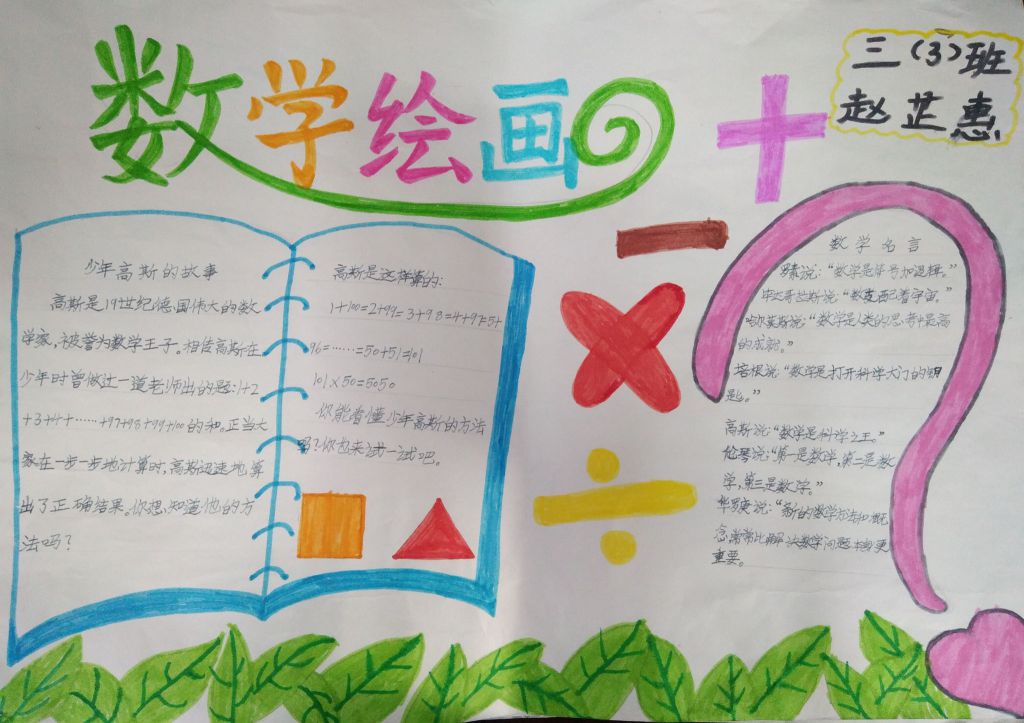 数学绘画
三(3)班
赵芷惠
少年高斯的故事
高斯是19世纪德国伟大的数
学家,被誉为数学王子。相传高斯在
少年时曾做过一道老师出的题:1+2
+3+4+……+97+98+99+100的和。正当大
家在一步一步地计算时,高斯迅速地算
出了正确结果。你想知道他的方
法吗?
高斯是这样算的:
1+100=2+99=3+98=4+97=5+
96=……=50+51=101
101×50=5050
你能看懂少年高斯的方法
吗?你也来试一试吧。
数学名言
罗素说:“数学是符号加逻辑。”
毕达哥拉斯说:“数支配着宇宙。”
哈尔莫斯说:“数学是人类的思考中最高
的成就。”
培根说“数学是打开科学大门的钥
匙。”
高斯说:“数学是科学之王。”
伦琴说:“第一是数学,第二是数
学,第三是数学。”
华罗庚说:“新的数学方法和概
念常常比解决数学问题本身更
重要。